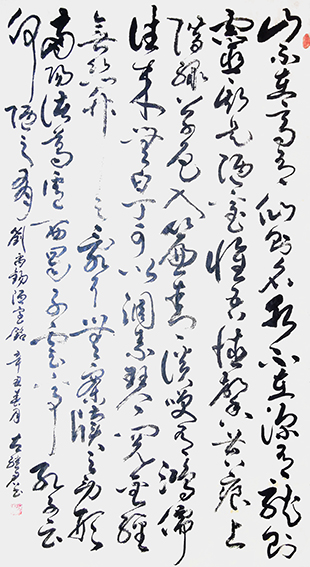 山不在高有仙則名水不在深有龍則
靈斯是陋室惟吾德馨苔痕上
階綠草色入簾青談笑有鴻儒
往來無白丁可以調素琴閱金經
無絲竹之亂耳無案牘之勞形
南陽諸葛廬西蜀子雲亭孔子云
何陋之有 劉禹錫陋室銘 辛丑春月